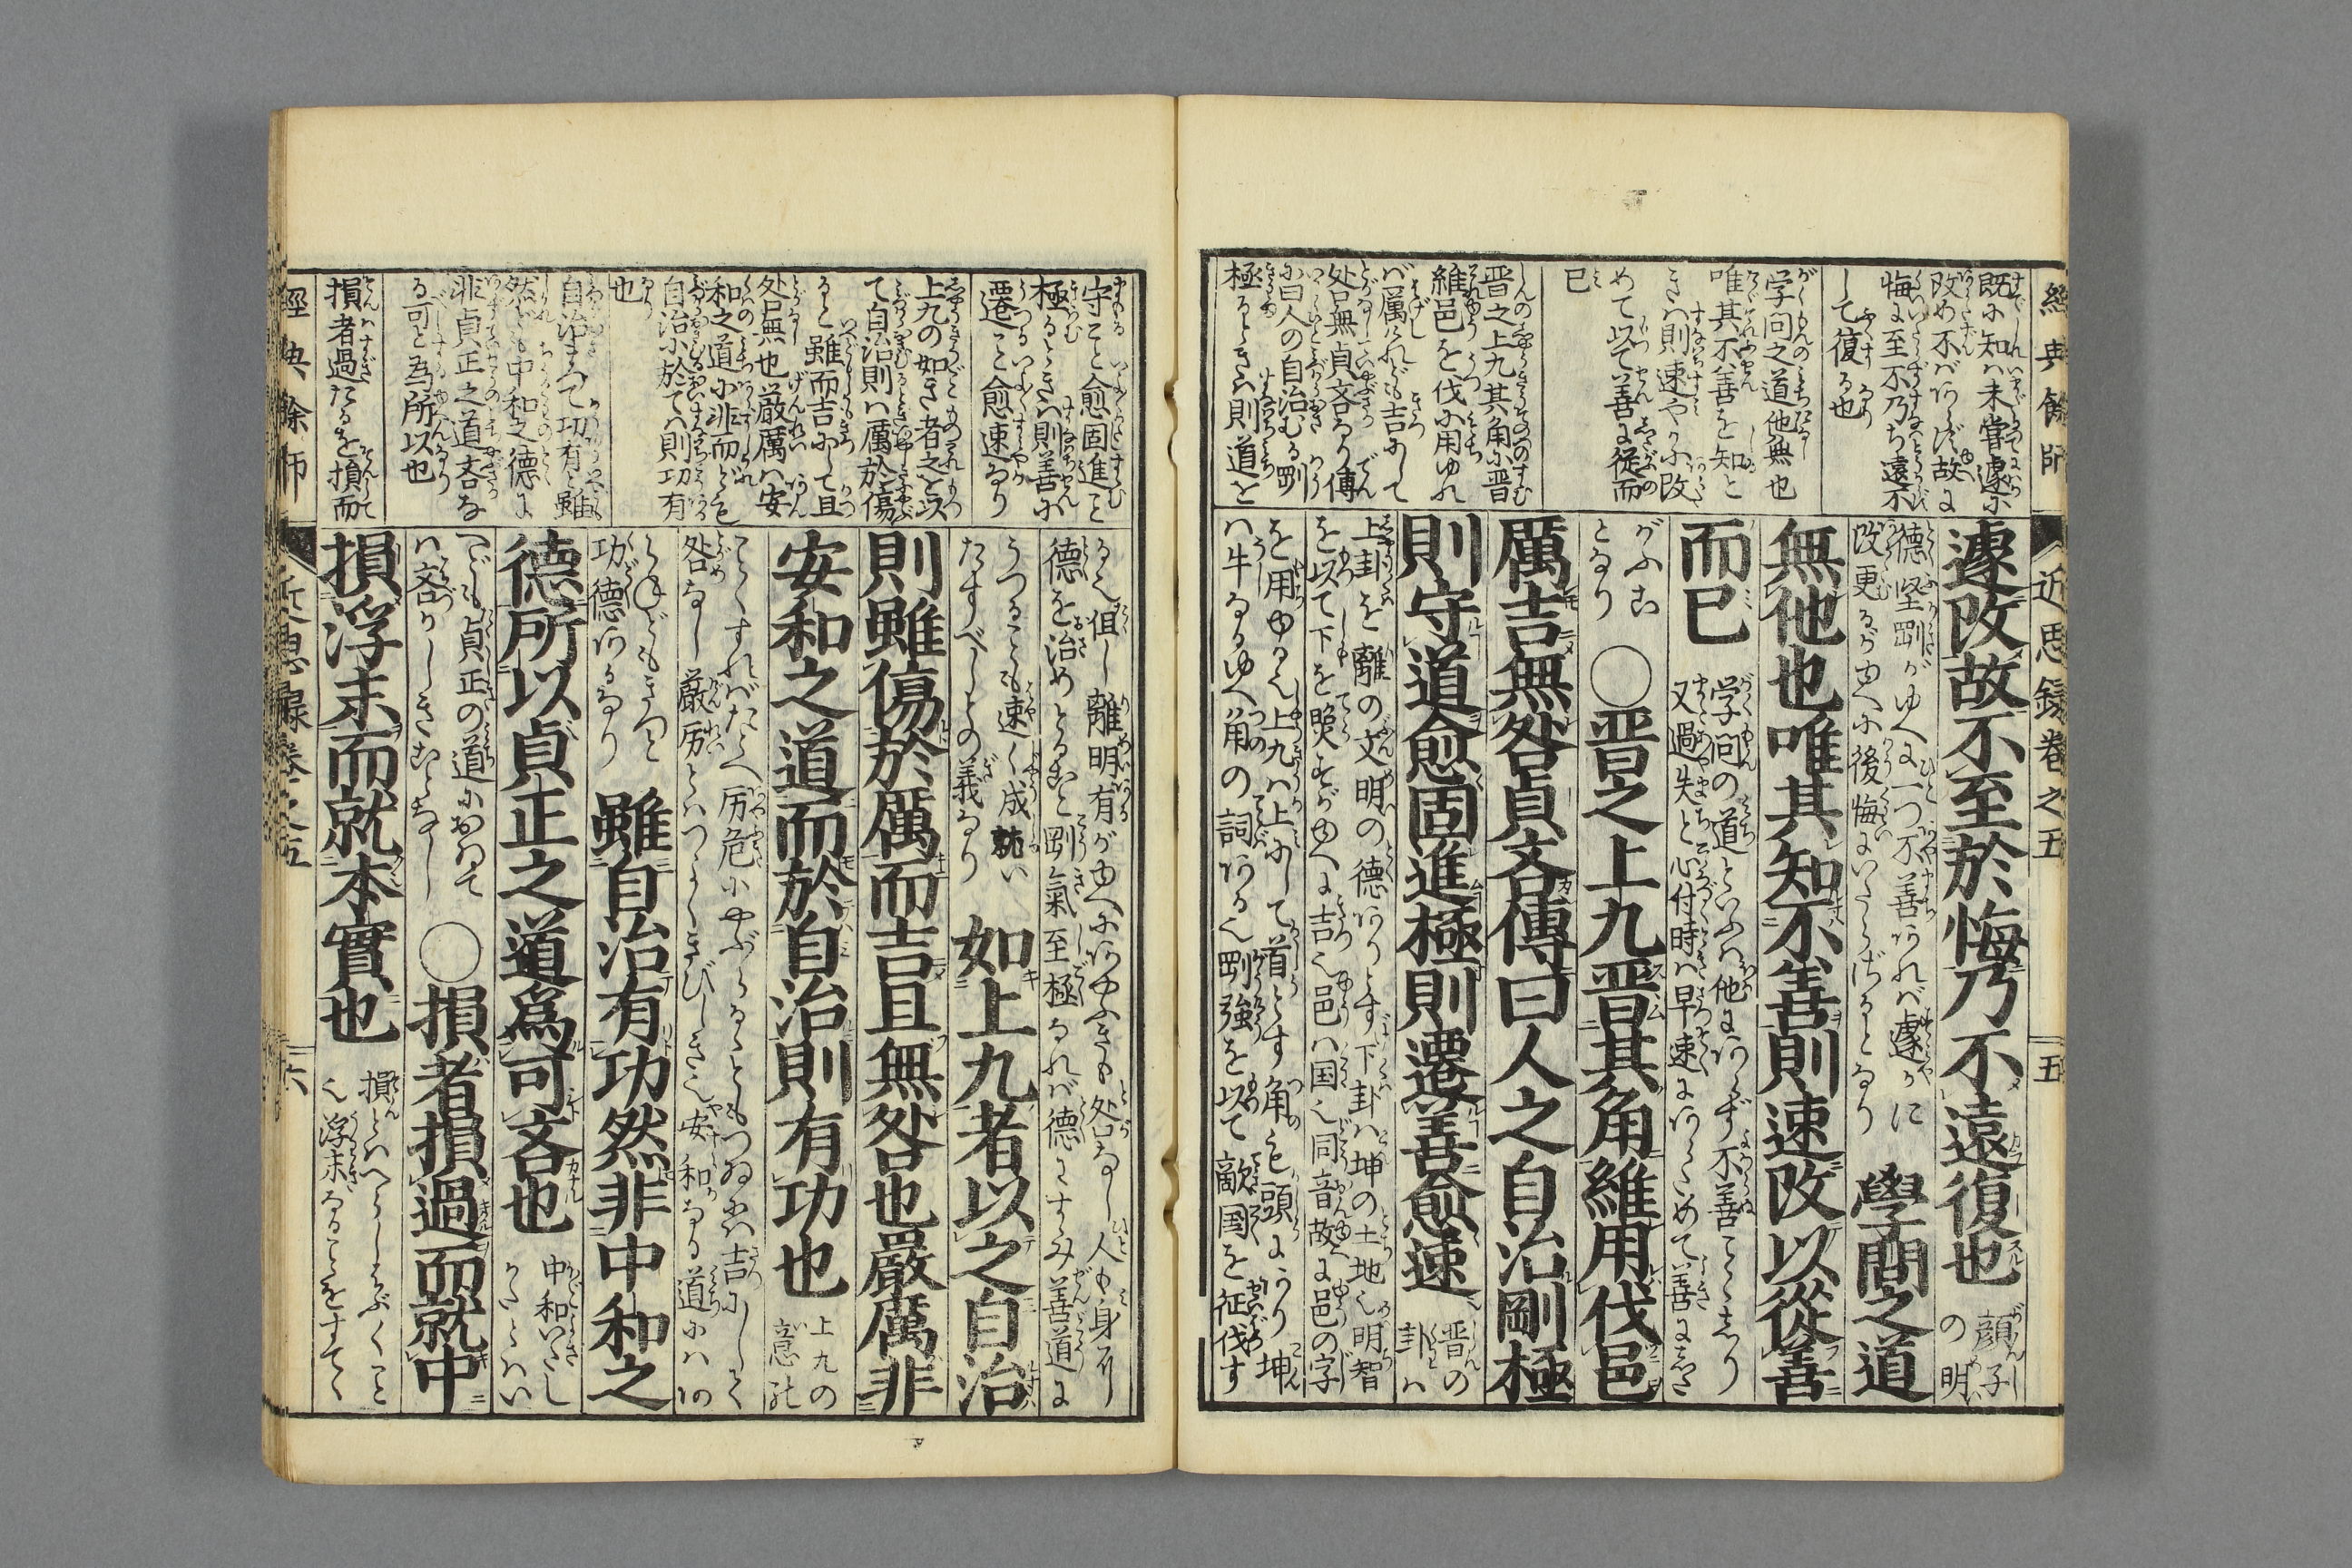 經典餘師
近思録卷之五
五
既に知ハ未嘗遽に
改め不バあらず故に
悔に至不乃ち遠不
して復る也
学问之道他無也
唯其不善を知と
きハ則速やかに改
めて以て善に従而
已
晋之上九其角に晋
維邑を伐に用ゆれ
バ厲けれども吉にして
咎無貞吝なり傳
に曰人の自治むる剛
極るときハ則道を
遽改故不至於悔乃不遠復也
顔子
の明
德堅剛がゆへに一つ不善あれバ遽かに
改更るがゆへに後悔にいたらざるとなり
學問之道
無他也唯其知不善則速改以從善
而已
学问の道といふハ他にあらず不善ことをしり
又過失と心付時ハ早速にあらためて善にしたがふ
となり
○晋之上九晋其角維用伐邑
厲吉無咎貞吝傳曰人之自治剛極
則守道愈固進極則遷善愈速
晋の
卦ハ
上卦を離の文明の德ありとす下卦ハ坤の土地也明智
を以て下を照すがゆへに吉也邑ハ国也同音故に邑の字
を用ゆる也上九ハ上にして首とす角も頭にあり坤
ハ牛なるゆへ角の詞ある也剛強を以て敵国を征伐す
守こと愈固進こと
極るときハ則善に
遷こと愈速なり
上九の如き者之を以
て自治則ハ厲於傷
ると雖而吉にして且
咎無也嚴厲ハ安
和之道に非而ども
自治に於てハ則功有
也
自治まつて功有と雖
然ども中和之德に
非貞正之道吝な
る可と為所以也
損者過たるを損而
る也但し離明有がゆへにあやふきも咎なし人も身を
德を治めとること剛氣至極なれバ德にすゝみ善道に
うつることも速く成就い
たすべしとの義なり
如上九者以之自治
則雖傷於厲而吉且無咎也嚴厲非
安和之道而於自治則有功也
上九の
意味
こくすればたとへ厉危にやぶるゝともつゐにハ吉にしてく
咎なし厳厉とハつよくきびしき也安和なる道にハあ
らねどもきつと
功德あるなり
雖自治有功然非中和之
德所以貞正之道爲可吝也
中和いたし
かたくハい
へども貞正の道におゐて
ハ吝かしきことなし
○損者損過而就中
損浮末而就本實也
損とハへらしはぶくこと
也浮末なることをすてく
經典餘師
近思録卷之五
六